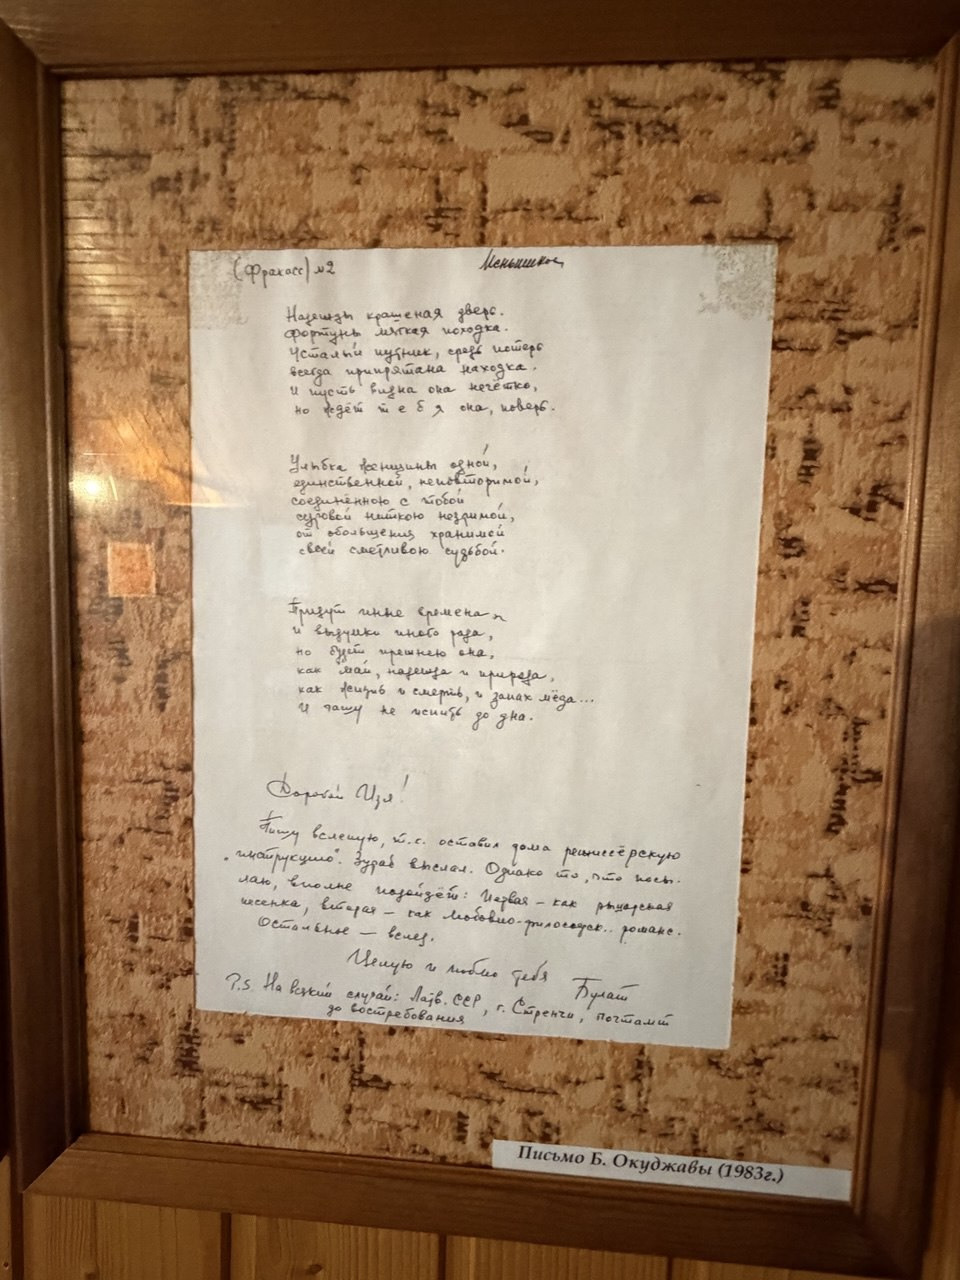 (Фракасс) №2
Надежды крашеная дверь.
Фортуны мягкая походка.
Усталый путник, средь потерь
всегда припрятана находка.
И пусть видна она нечётко,
но ждёт т е б я она, поверь.
Улыбка женщины одной,
единственной, неповторимой,
соединённою с тобой
суровой ниткою незримой,
от обольщения хранимой
своей сметливою судьбой.
Придут иные времена
и выдумки иного рода,
но будет прежнею она,
как май, надежда и природа,
как жизнь и смерть, и запах мёда...
И чашу не испить до дна.
Дорогой Изя!
Пишу вслепую, т.к. оставил дома режиссёрскую
"инструкцию". Зураб выслал. Однако то, что посы-
лаю, вполне подойдёт: Первая – как рыцарская
песенка, вторая – как любовно-философск.. романс.
Остальное – вслед.
Целую и люблю тебя
Булат
P.S. На всякий случай: Латв. ССР, г. Стренчи, почтамт
до востребования
Письмо Б. Окуджавы (1983г.)